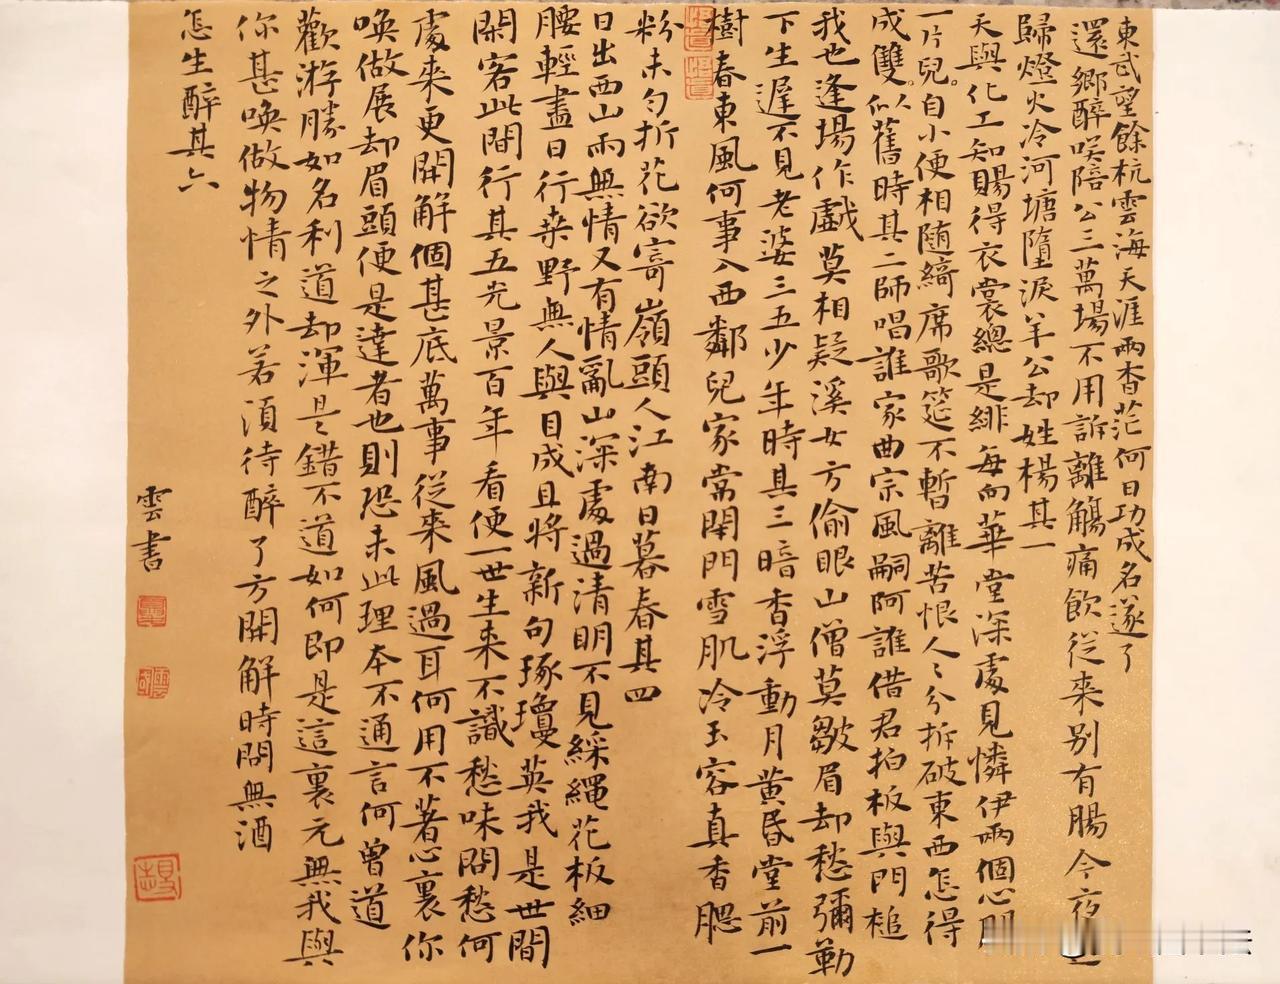 東武望餘杭雲海天涯兩杳茫何日功成名遂了
還鄉醉咲陪公三萬場不用訴離觴痛飲從来别有腸今夜
歸燈火冷河塘墮淚羊公却姓楊其一
天與化工知賜得衣裳總是緋每向華堂深處見憐伊兩個心腸
一片兒自小便相随綺席歌筵不暫離苦恨人〻分拆破東西怎得
成雙似舊時其二師唱誰家曲宗風嗣阿誰借君拍板與門槌
我也逢場作戲莫相疑溪女方偷眼山僧莫皺眉却愁彌勒
下生遅不見老婆三五少年時其三暗香浮動月黄昏堂前一
樹春東風何事入西鄰兒家常閉門雪肌冷玉容真香腮
粉未匀折花欲寄嶺頭人江南日暮春其四
日出西山雨無情又有情亂山深處過清明不見綵繩花板細
腰輕盡日行桒野無人與目成且將新句琢瓊英我是世間
閑客此間行其五光景百年看便一世生来不識愁味問愁何
處来更開解個甚底萬事從来風過耳何用不著心裏你
唤做展却眉頭便是達者也則恐未此理本不通言何曾道
歡游勝如名利道却渾是錯不道如何即是這裏元無我與
你甚唤做物情之外若須待醉了方開解時問無酒
怎生醉其六
雲書